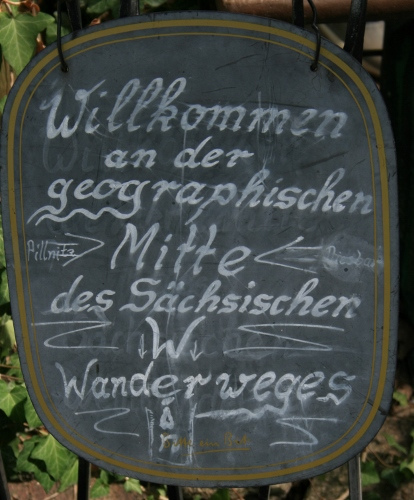 Willkommen
an der
geographischen
Pillnitz Mitte
des Sächsischen
W
Wanderweges